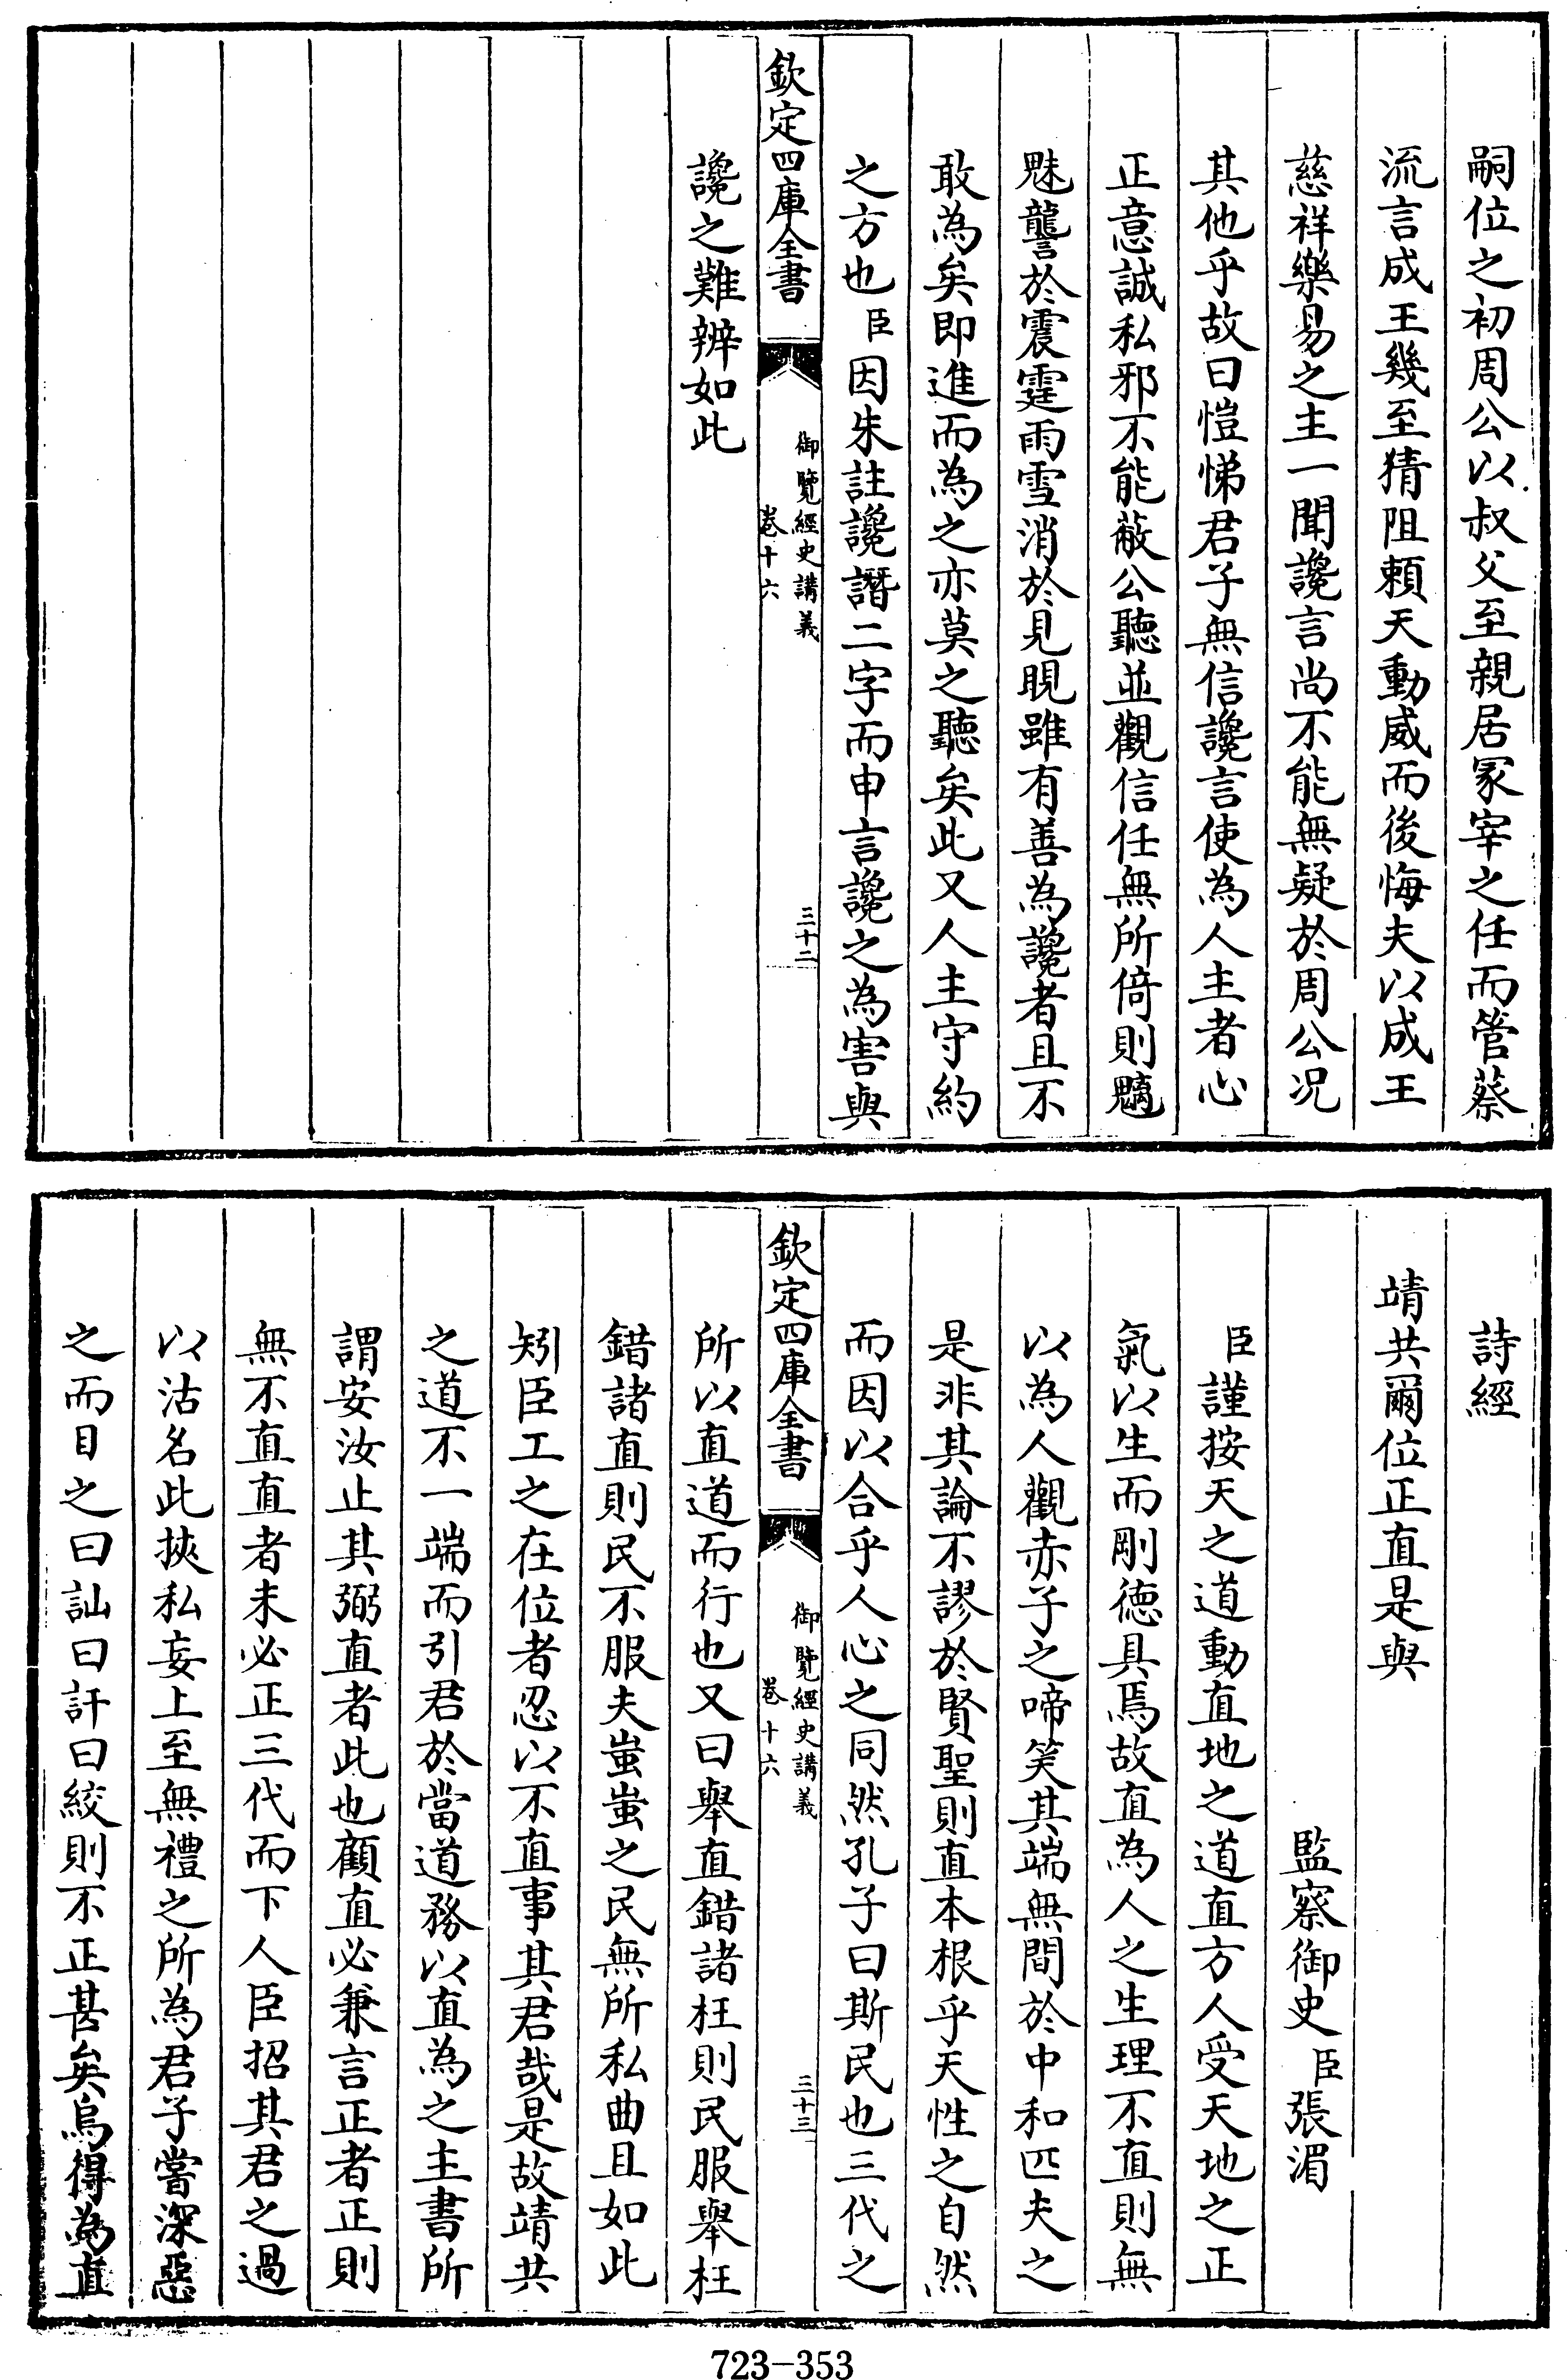 嗣位之初周公以叔父至親居冢宰之任而管蔡
流言成王幾至猜阻頼天動威而後悔夫以成王
慈祥樂易之主一聞讒言尚不能無疑於周公况
其他乎故曰愷悌君子無信讒言使為人主者心
正意誠私邪不能蔽公聽並觀信任無所倚則魑
魅讋於震霆雨雪消於見晛雖有善為讒者且不
敢為矣即進而為之亦莫之聽矣此又人主守約
之方也臣因朱註讒譖二字而申言讒之為害與
欽定四庫全書
御覽經史講義
卷十六
三十二
讒之難辨如此
詩經
靖共爾位正直是與
監察御史臣張湄
臣謹按天之道動直地之道直方人受天地之正
氣以生而剛德具焉故直為人之生理不直則無
以為人觀赤子之啼笑其端無間於中和匹夫之
是非其論不謬於賢聖則直本根乎天性之自然
而因以合乎人心之同然孔子曰斯民也三代之
欽定四庫全書
御覽經史講義
卷十六
三十三
所以直道而行也又曰舉直錯諸枉則民服舉枉
錯諸直則民不服夫蚩蚩之民無所私曲且如此
矧臣工之在位者忍以不直事其君哉是故靖共
之道不一端而引君於當道務以直為之主書所
謂安汝止其弼直者此也顧直必兼言正者正則
無不直直者未必正三代而下人臣招其君之過
以沽名此挾私妄上至無禮之所為君子嘗深惡
之而目之曰訕曰訐曰絞則不正甚矣烏得為直
723-353